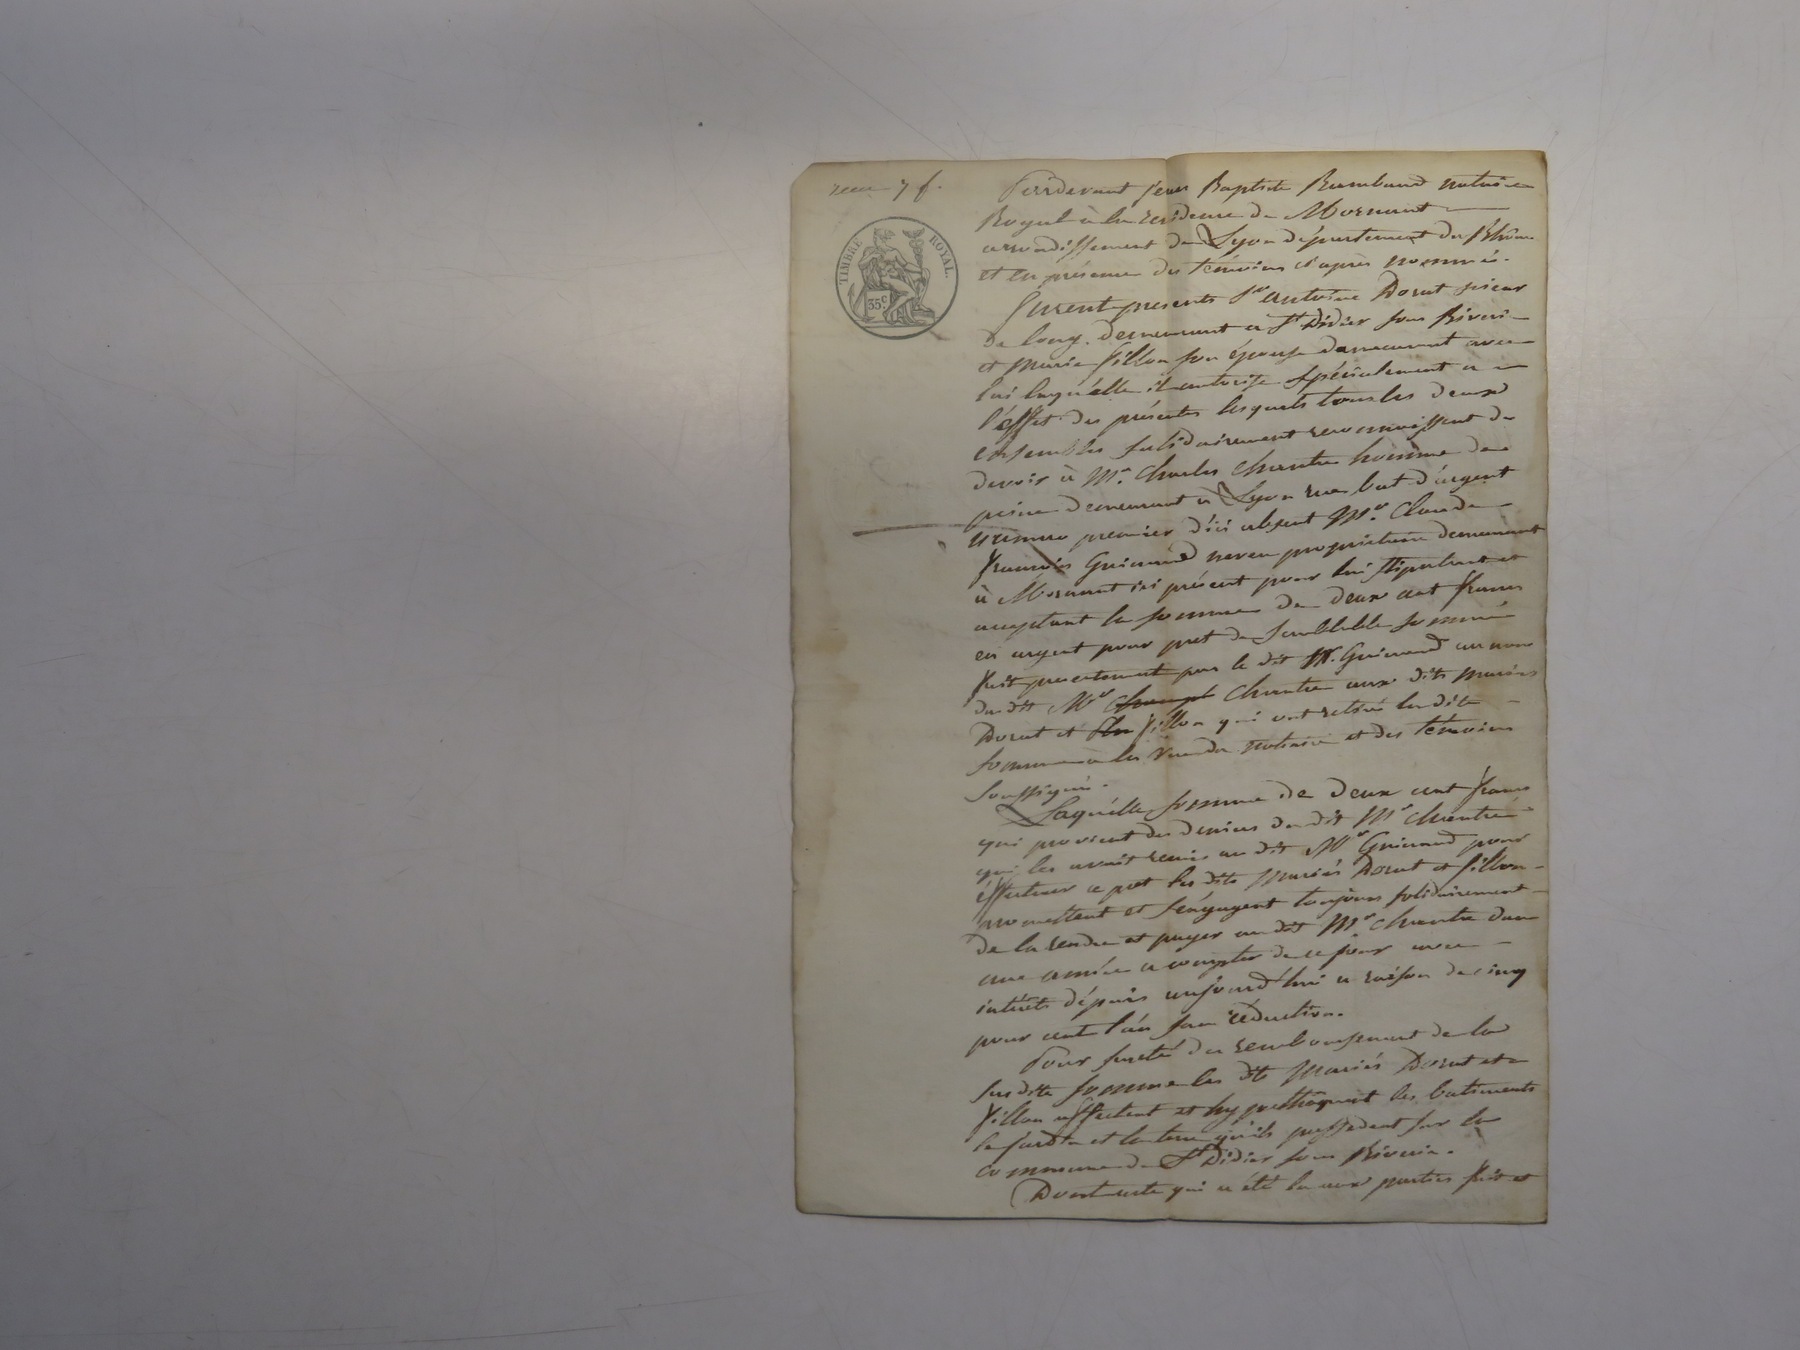 recu 7 f.
TIMBRE ROYAL.
35 c.
Pardevant Jean Baptiste Rambaud notaire
Royal à la residence de Mornant
arrondissement de Lyon département du Rhône
et en présence des témoins ci après nommés.
Furent presents Sr antoine Dorat scieur
de long. demeurant a St Didier sous Riverie
et Marie fillon son épouse demeurant avec
lui laquelle il autorise spécialement a
l'éffet des présentes lesquels tous les deux
ensembles solidairement reconnoissent de
devoir à Mr. Charles Chantre homme de
peine demeurant à Lyon rue bat d'argent
numero premier d'ici absent Mr. Claude
françois Guinand neveu proprietaire demeurant
à Mornant ici présent pour lui stipulant et
acceptant la somme de deux cent francs
en argent pour pret de semblable somme
fait presentement par le dit Mr. Guinand au nom
du dit Mr Chantre aux dits mariés
Dorat et fillon qui ont retiré la dite
somme à la vue du notaire et des témoins
soussignés.
Laquélle somme de deux cent francs
qui provient des deniers du dit Mr chantre
qui les avait remis au dit Mr Guinand pour
éffectuer ce pret les dits mariés Dorat et fillon
promettent et s'engagent toujours solidairement
de la rendre et payer au dit Mr. chantre dans
une année a compter de ce jour avec
intérêts dépuis aujourd'hui a raison de cinq
pour cent l'an sans réduction.
Pour sureté du remboursement de la
susdite somme les dits Mariés Dorat et
fillon affectent et hypothéquent les batiments
le jardin et la terre qu'ils possedent sur la
commune de St Didier sous Riverie.
Dont acte qui a été lu aux parties fait et